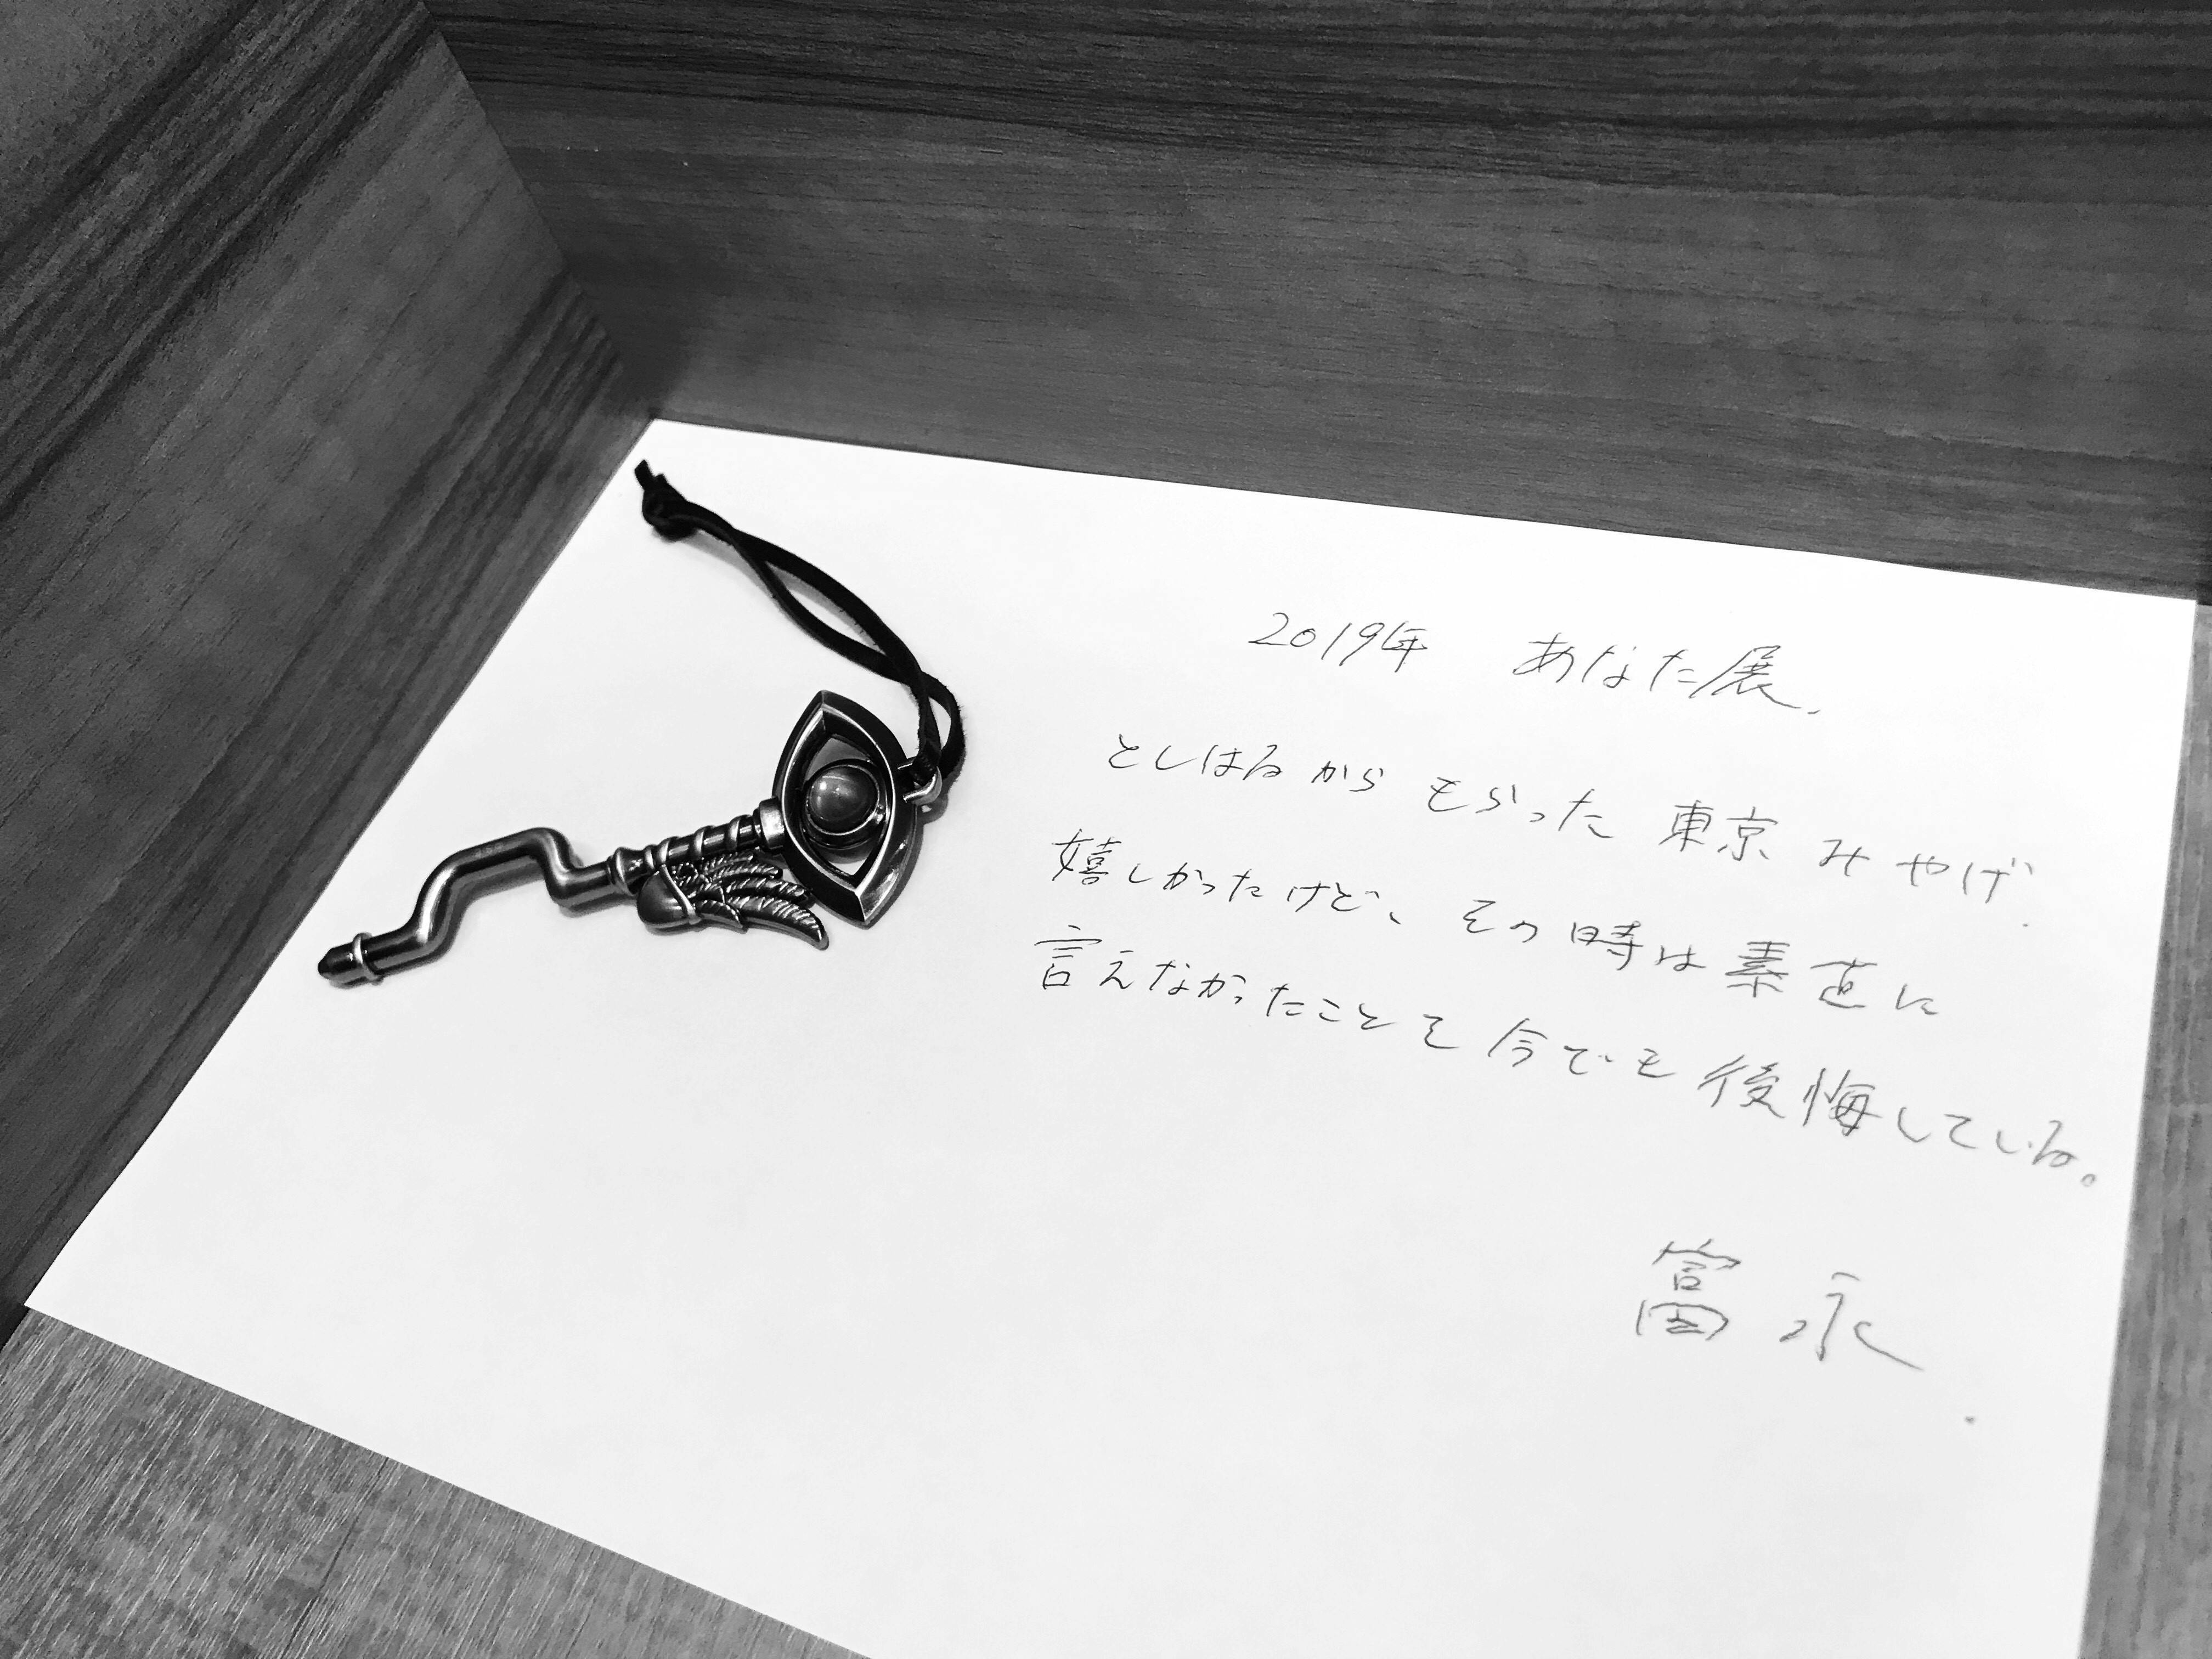 2019年 あなた展.
としはるから もらった 東京 みやげ.
嬉しかったけど、その時は素直に
言えなかったことを今でも後悔している。
富永.